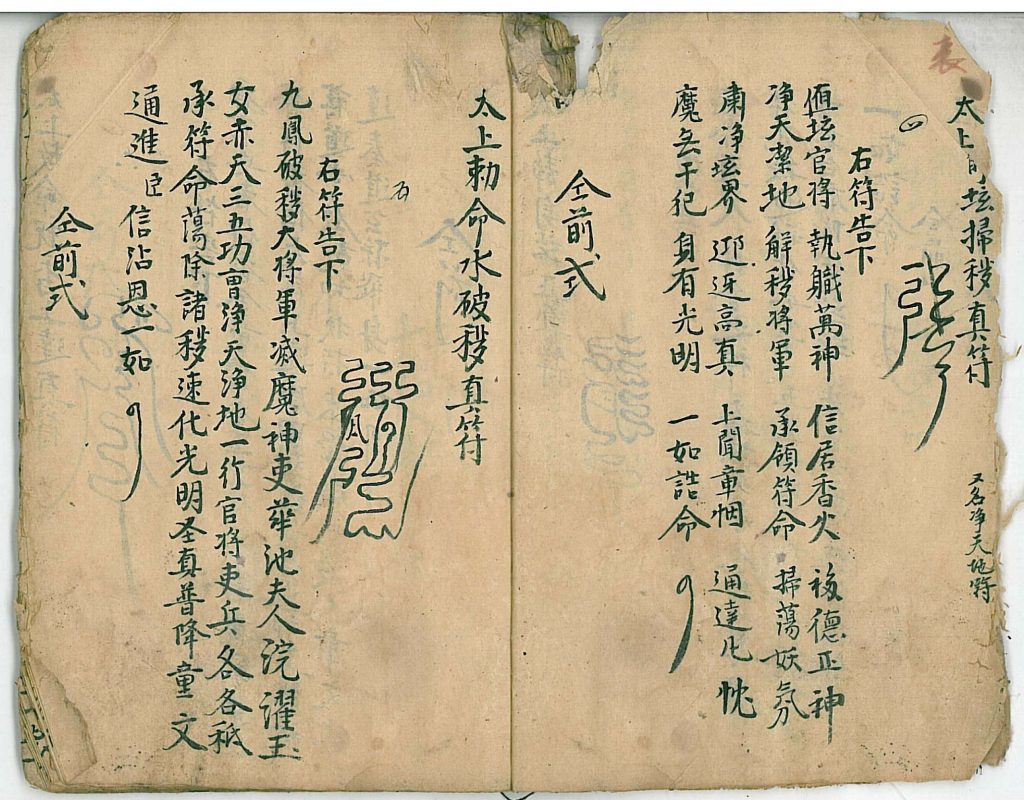 表
太上 坛掃秽真符
又名净天地符
右符告下
值坛官将 執軄萬神 信居香火 福德正神
净天潔地 解秽将軍 承領符命 掃荡妖氛
肅净坛界 迎迓高真 上聞章悃 通達凡忱
魔無干犯 身有光明 一如誥命
仝前式
太上勅命水破秽真符
右符告下
九鳳破秽大将軍 滅魔神吏 華池夫人 浣濯玉
女赤天三五功曹淨天淨地一行官将吏兵各各祇
承符命蕩除諸秽速化光明圣真普降童文
通進臣 信沾恩一如
仝前式